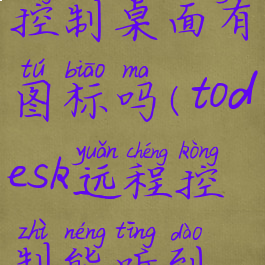 控制桌面有
tú biāo ma
图标吗(tod
yuǎn chéng kòng
esk远程控
zhì néng tīng dào
制能听到